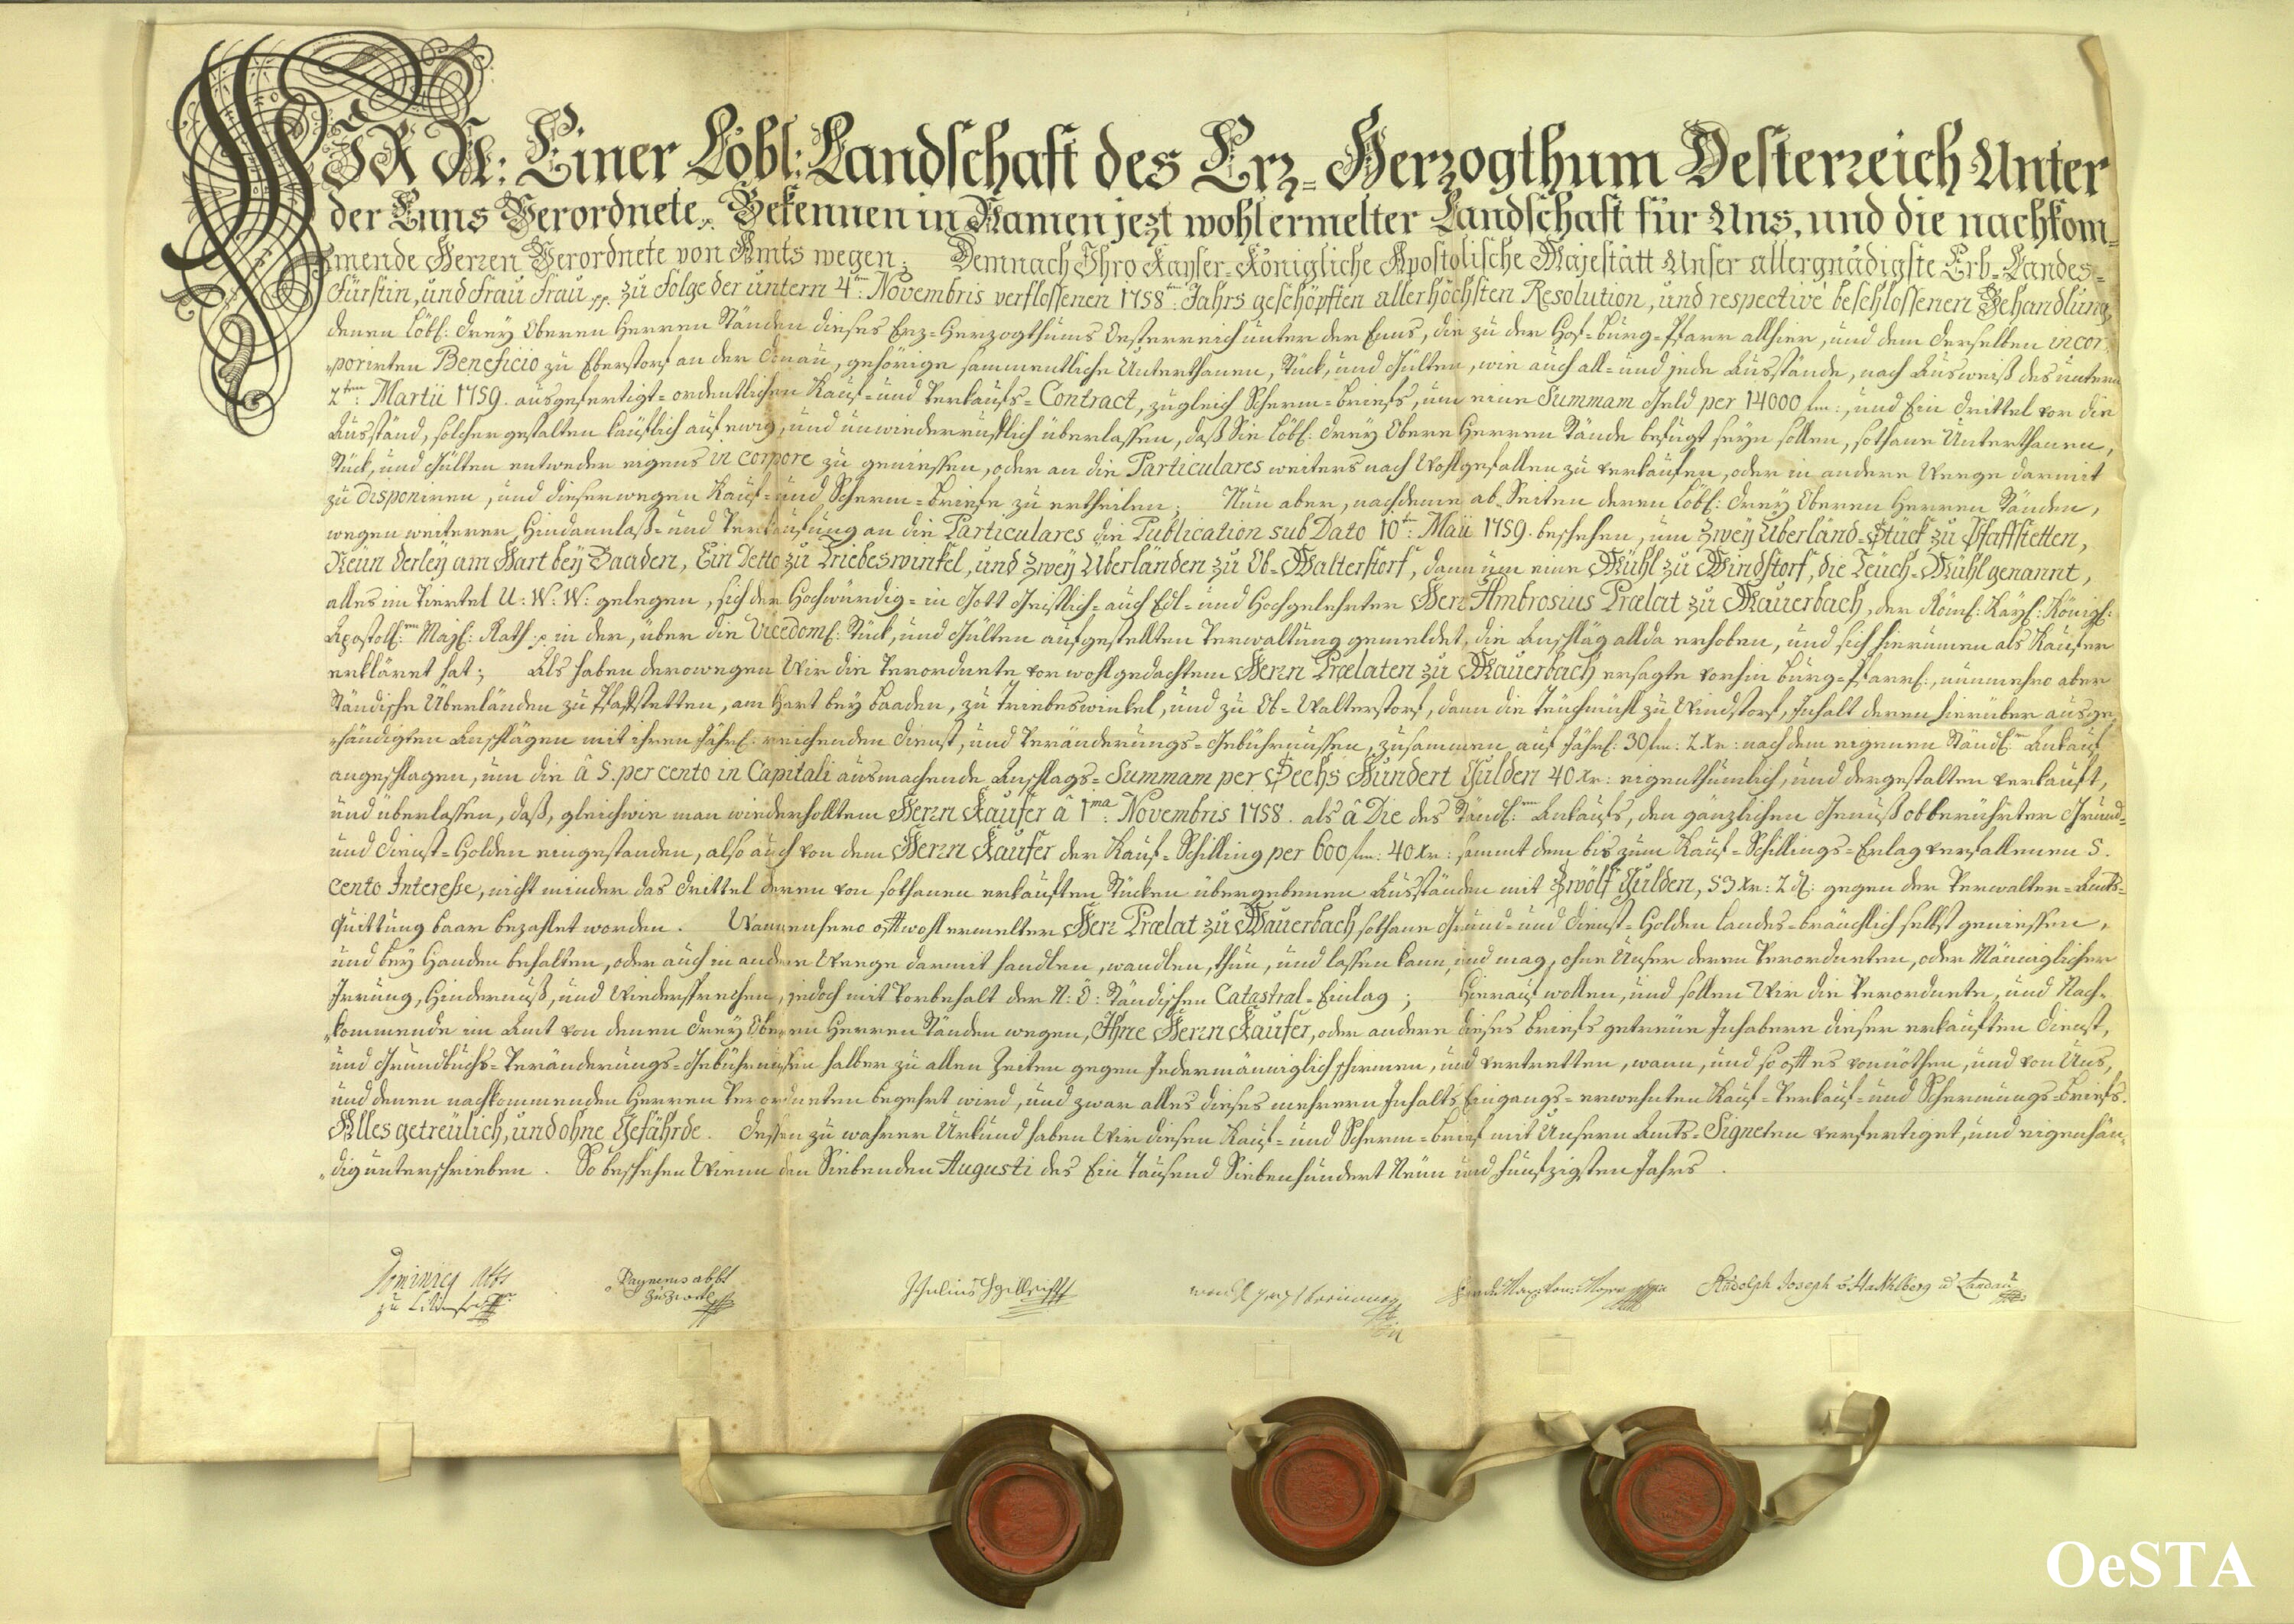 WIR N: Einer Löbl: Landschaft des Erz=Herzogthum Oesterreich Unter
der Enns Verordnete. Bekennen in Namen jezt wohl ermelter Landschaft für Uns, und die nachkom=
mende Herren Verordnete von Amts wegen; Demnach Ihro Kayser=Königliche Apostolische Majestätt Unser allergnädigste Erb=Landes=
Fürstin, und Frau Frau pp. zu Folge der untern 4ten: Novembris verflossenen 1758ten: Jahrs geschöpften allerhöchsten Resolution, und respectivè beschlossenen Behandlung,
denen Löbl: drey Oberen Herren Ständen dieses Erz=Herzogthums Oesterreich unter der Enns, die zu der Hof=Burg=Pfarr allhier, und dem derselben incor=
porirten Beneficio zu Eberstorf an der Donau, gehörige sammentliche Unterthanen, Stück, und Gülten, wie auch all= und jede Ausstände, nach Ausweiß des untern
2ten: Martii 1759. ausgefertigt=ordentlichen Kauf= und Verkaufs=Contract, zugleich Scherm=Briefs, um eine Summam Geld per 14000 fl:, und Ein Drittel vor die
Ausständ, solcher gestalten kauflich auf ewig, und unwiederruflich überlassen, daß Sie Löbl: drey Obere Herren Stände befugt seyn sollen, sothane Unterthanen,
Stück, und Gülten entweder eigens in corpore zu geniessen, oder an die Particulares weiters nach Wohlgefallen zu verkaufen, oder in andere Weege darmit
zu disponiren, und dieserwegen Kauf= und Scherm=Briefe zu ertheilen; Nun aber, nachdeme ab Seiten deren Löbl: drey Oberen Herren Ständen,
wegen weiterer Hindannlaß= und Verkaufung an die Particulares die Publication sub Dato 10ten: Maii 1759. beschehen, um Zwey Überländ=Stück zu Pfaffstetten,
Neun derley am Hart bey Baaden, Ein Detto zu Triebeswinkel, und Zwey Überländen zu Ob=Walterstorf, dann um eine Mühl zu Windstorf, die Teuch=Mühl genannt,
alles im Viertel U: W: W: gelegen, sich der Hochwürdig= in Gott Geistlich= auch Edl= und Hochgelehrter Herr Ambrosius Prælat zu Mauerbach, der Röml: Kayl: Königl:
Apostoll:en Mayl: Rath p: in der, über die Vicedoml: Stück, und Gülten aufgestellten Verwaltung gemeldet, die Anschläg allda erhoben, und sich hierumen als Käufer
erkläret hat; Als haben derowegen Wir die Verordnete vor wohl gedachtem Herrn Prælaten zu Mauerbach ersagte vorhin Burg=Pfarrl:, nunmehro aber
Ständische Überländen zu Pfaffstetten, am Hart bey Baaden, zu Triebeswinkel, und zu Ob=Walterstorf, dann die Teuchmühl zu Windstorf, Inhalt deren hierüber ausge=
händigten Anschlägen mit ihren Jährl: reichenden Dienst, und Veränderungs=Gebührnussen, zusammen auf Jährl: 30 fl: 2 Xr: nach dem eigenen Ständl:en Ankauf
angeschlagen, um die â 5. per cento in Capitali ausmachende Anschlags=Summam per Sechs Hundert Gulden 40 Xr: eigenthumlich, und dergestalten verkauft,
und überlassen, daß, gleichwie man wiederhollten Herrn Kaufer â 1ma: Novembris 1758. als â Die des Ständl:en Ankaufs, den gänzlichen Genuß obberührter Grund=
und Dienst=Holden eingestanden, also auch von dem Herrn Kaufer der Kauf=Schilling per 600 fl: 40 Xr: sammt dem bis zum Kauf=Schillings=Erlag verfallenen 5.
cento Interesse, nicht minder das Drittel deren von sothanen erkauften Stücken übergebenen Ausständen mit Zwölf Gulden, 53 Xr: 2 d: gegen der Verwalter=Amts=
Quittung baar bezahlet worden. Wannenhero oftwohl ermelter Herr Prælat zu Mauerbach sothane Grund= und Dienst=Holden Landes=bräuchlich selbst geniessen,
und bey Handen behalten, oder auch in andere Weege darmit handlen, wandlen, thun, und lassen kann, und mag, ohne Unser deren Verordneten, oder Männiglicher
Irrung, Hindernuß, und Wiedersprechen, jedoch mit Vorbehalt der N: Ö: Ständischen Catastral=Einlag; Hierauf wollen, und sollen Wir die Verordnete, und Nach=
kommende im Amt von denen drey Oberen Herren Ständen wegen, Ihne Herrn Kaufer, oder andere dieses Briefs getreue Inhabere dieser erkauften Dienst,
und Grundbuchs=Veränderungs=Gebührnussen halber zu allen Zeiten gegen Jedermänniglich schirmen, und vertretten, wann, und so oft es vonnöthen, und von Uns,
und denen nachkommenden Herren Verordneten begehrt wird, und zwar alles dieses mehrern Inhalts Eingangs=erwehnten Kauf=Verkauf= und Schermungs=Briefs.
Alles getreulich, und ohne Gefährde. Dessen zu wahrer Urkund haben Wir diesen Kauf= und Scherm=Brief mit Unsern Amts=Signeten verfertiget, und eigenhän=
dig unterschrieben. So beschehen Wienn den Siebenden Augusti des Ein Tausend Siebenhundert Neun und Funfzigsten Jahrs.
Dominicq Abbt
zu
Raynerus abbt
zu Zwetl
Julius
Rudolph Joseph
OeSTA